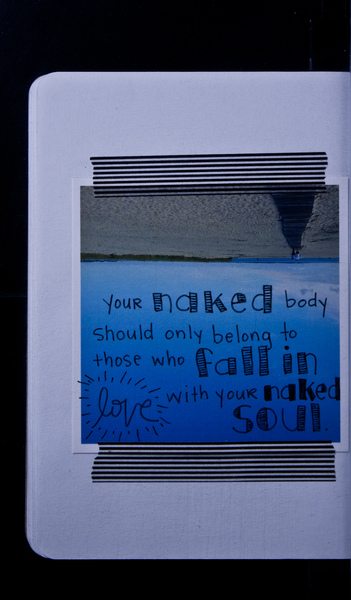 your naked body
should only belong to
those who fall in
love with your naked
soul.